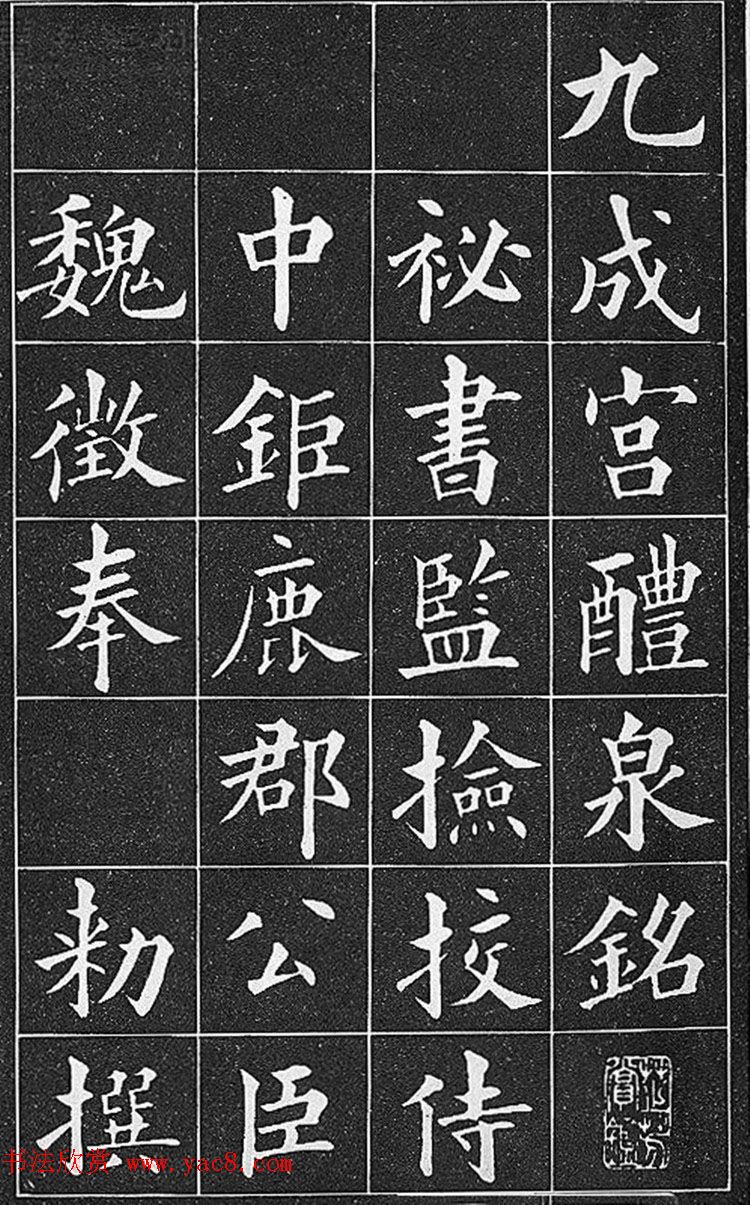 九成宮醴泉銘
祕書監撿挍侍
中鉅鹿郡公臣
魏徵奉勑撰
书法欣赏 www.yac8.com